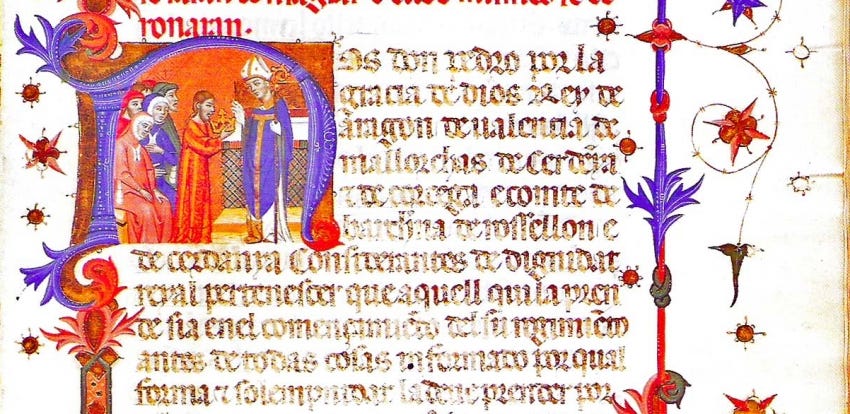 ronaran.
Nos don pedro por la
gracia de dios Rey de
Aragon de valencia de
mallorchas de Cerdeña
e de corcega e comte de
barchña de rossellon e
de cerdanya Considerantes de dignidat
reyal pertenescer que aquell qui la pren
de sia en el començamiēto del su regimiēto
antes de todas cosas informado por qual
forma e solempnidat la deue prender por